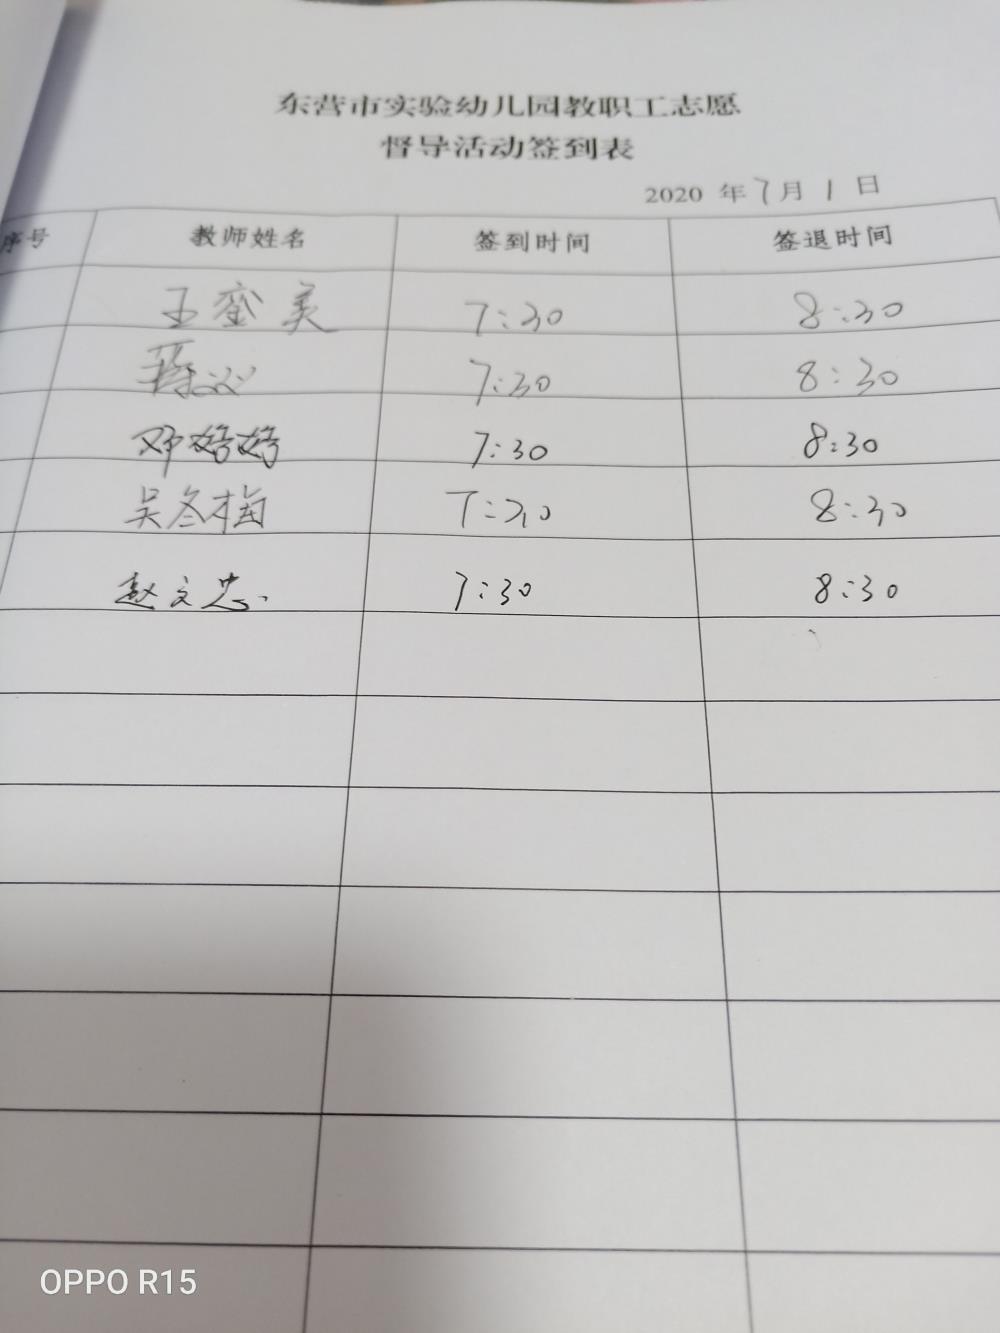 东营市实验幼儿园教职工志愿
督导活动签到表
2020 年 7 月 1 日
序号 教师姓名 签到时间 签退时间
王奎美 7:30 8:30
7:30 8:30
邓婷婷 7:30 8:30
吴冬梅 7:30 8:30
赵文忠 7:30 8:30
OPPO R15